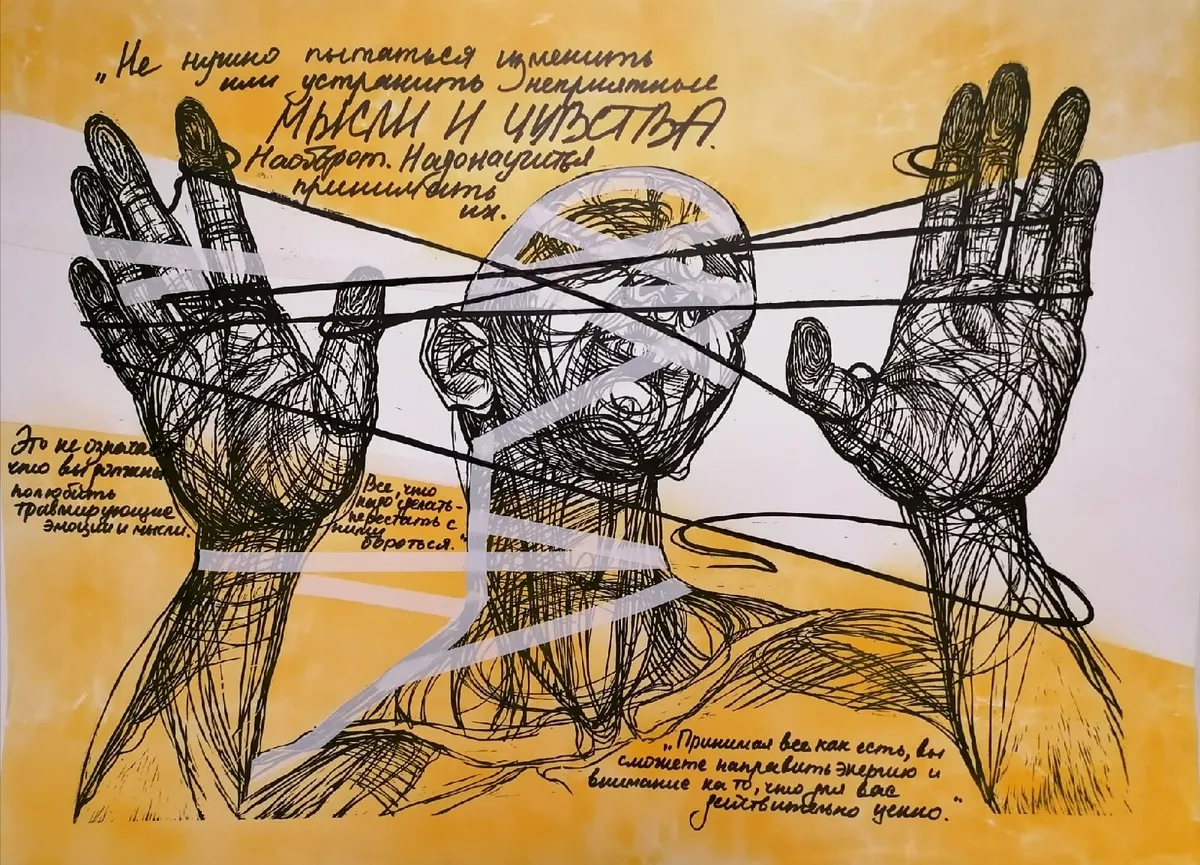 „Не нужно пытаться изменить
или устранить неприятные
МЫСЛИ И ЧУВСТВА.
Наоборот. Надо научиться
принимать
их.
Это не означает
что вы должны
полюбить
травмирующие
эмоции и мысли.
Все, что
надо сделать-
перестать с
ними
бороться."
„Принимая все как есть, вы
сможете направить энергию и
внимание на то, что для вас
действительно ценно."